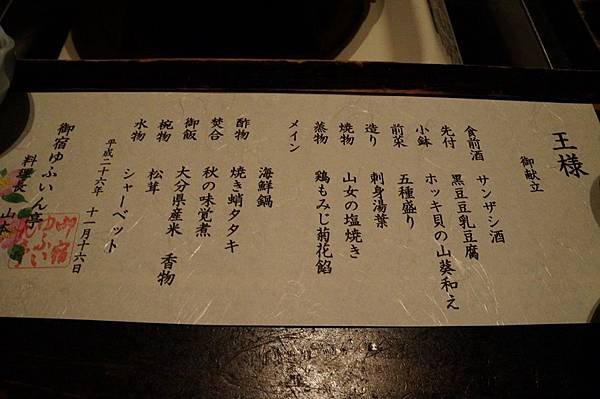 王様
御献立
食前酒 サンザシ酒
先付 黒豆豆乳豆腐
小鉢 ホッキ貝の山葵和え
前菜 五種盛り
造り 刺身湯葉
焼物 山女の塩焼き
蒸物 鶏もみじ菊花餡
メイン
海鮮鍋
酢物 焼き蛸タタキ
焚合 秋の味覚煮
御飯 大分県産米 香物
椀物 松茸
水物 シャーベット
平成二十六年 十一月十六日
御宿ゆふいん亭
料理長 山本
御宿
ゆふい